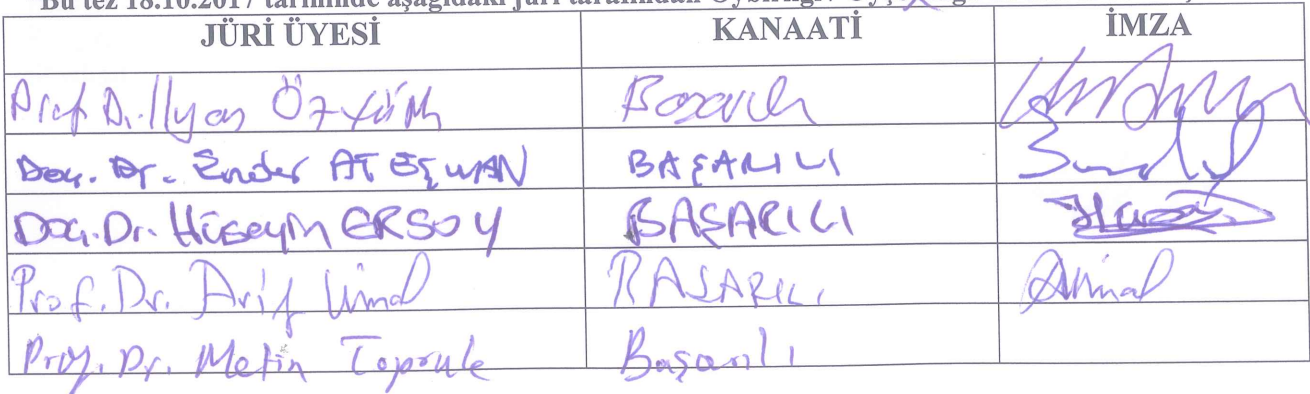 Bu tez 18.10.2017 tarihinde aşağıdaki jüri tarafından
JÜRİ ÜYESİ KANAATİ İMZA
Prof. Dr. İlyas Öztürk Başarılı
Doç. Dr. Ender BAŞARILI
Doç. Dr. Hüseyin ERSOY BAŞARILI
Prof. Dr. Arif Ünal BAŞARILI Aünal
Prof. Dr. Metin Toprak Başarılı